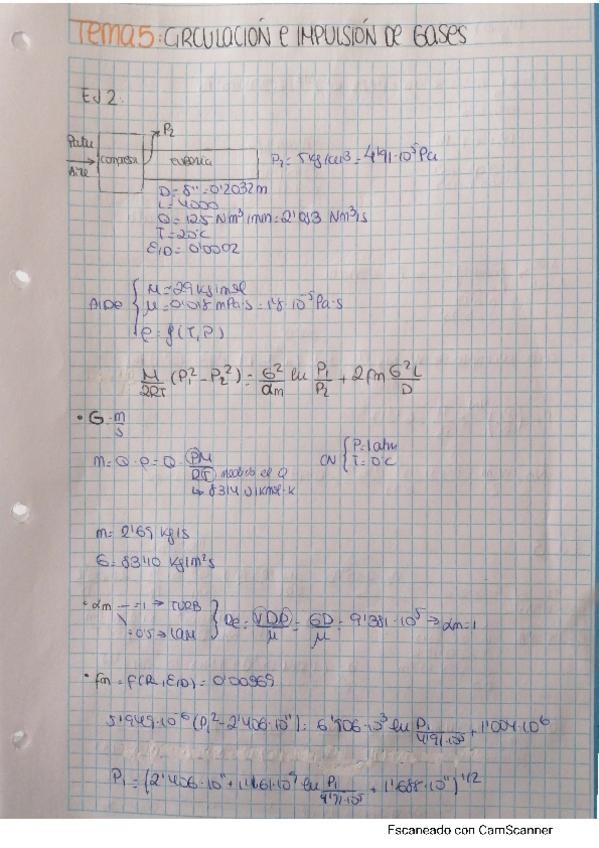 Tema 5: CIRCULACIÓN e IMPULSIÓN De GASES
EJ 2.
P2
Aire
P2 = 5 kg/cm3 = 4'91·10^5 Pa
D = 8'' = 0'2032 m
L = 4000
Q = 125 Nm3/min = 2'083 Nm3/s
T = 20ºC
E/D = 0'0002
Aire { M = 29 kg/kmol
μ = 0'018 mPa·s = 1'8·10^-5 Pa·s
ρ = f(T, P)
M/2RT (P1^2 - P2^2) = G^2/αm ln P1/P2 + 2fm G^2 L/D
• G = m/s
m = Q·ρ = Q · PM/RT medios el Q
↳ 8314 J/kmol·K
CN { P = 1 atm
T = 0ºC
m = 2'69 kg/s
G = 83'10 kg/m2s
• αm = 1 → TURB
= 0.5 → LAM } Re = VDρ/μ = GD/μ = 9'381·10^5 → αm = 1
• fm = f(Re, E/D) = 0'00369
5'949·10^-6 (P1^2 - 2'406·10^11) = 6'906·10^3 ln P1/4'91·10^5 + 1'004·10^6
P1 = (2'406·10^11 + 1'161·10^9 ln P1/4'91·10^5 + 1'688·10^11)^1/2
Escaneado con CamScanner